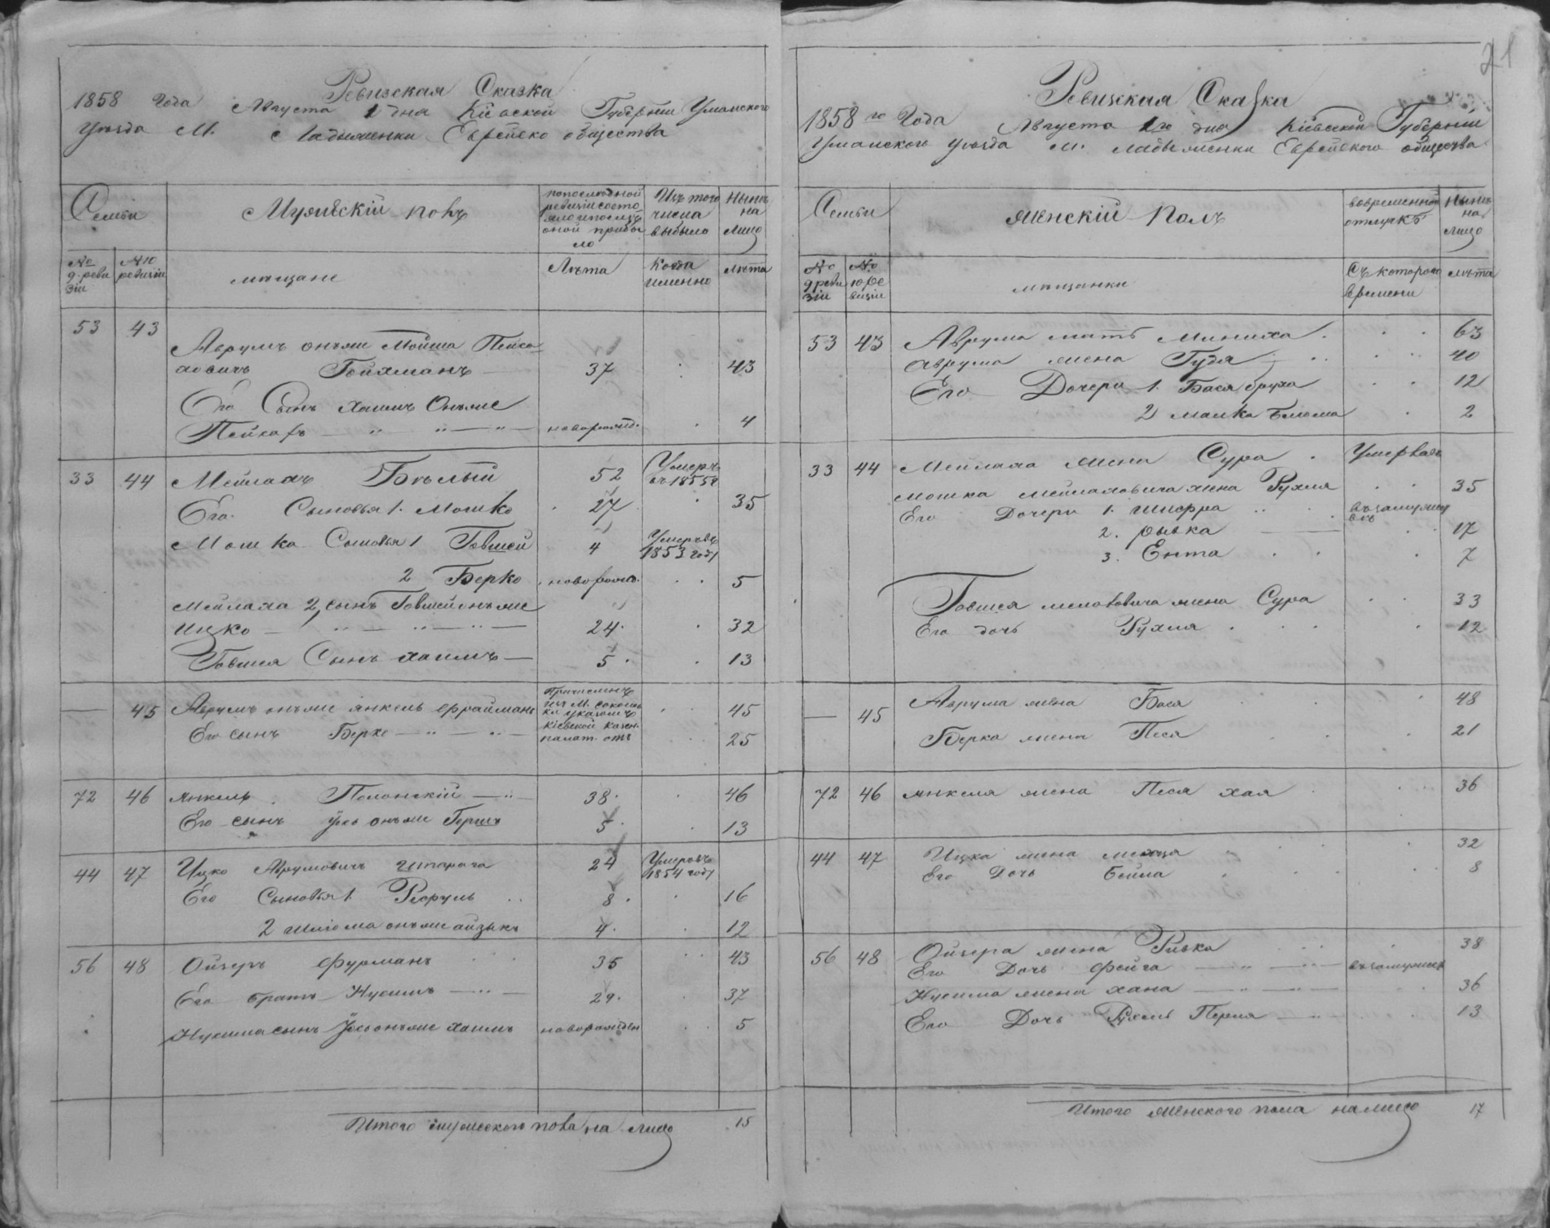 Ревизская Сказка
1858 Года Августа 1 дня Кіевской Губерніи Уманского
Уезда М. Ладыженки Еврейско общества
Семьи
Мужескій полъ
по последной ревизіи состояло и после оной прибыло
Изъ того числа выбыло
Нынѣ на лицо
№ 9 ревизіи
№ 10 ревизіи
мещане
Лѣта
Когда именно
лѣта
53 43
Аврумъ онъже Мойша Пейсаховичъ Гойхманъ 37 43
Его Сынъ Хаимъ Онъже
Пейсахъ новорожд. 4
33 44 Мейлахъ Бѣлый 52 Умеръ въ 1855
Его Сыновья 1. Мошко 27 35
Мошка Сыновья 1 Говшей 4 Умеръ въ 1853 году
2 Берко новорожд. 5
Мейлаха 2 сынъ Говшей онъже
Ицко 24 32
Говшея Сынъ Хаимъ 5 13
45 Аврумъ онъже Янкель Фрайманъ причисленъ изъ М. указомъ Кіевской Казен. палат. 45
Его сынъ Берко 25
72 46 Янкель Полонскій 38 46
Его сынъ онъже Герш 5 13
44 47 Ицко Аврумовичъ 24 Умеръ въ 1854 году
Его Сыновья 1 8 16
2 Шлёма онъже Айзыкъ 4 12
56 48 Ойзеръ Фурманъ 35 43
Его братъ Нусимъ 29 37
Нусима сынъ онъже Хаимъ новорожден 5
Итого мужеского пола на лицо 15
21
Ревизская Сказка
1858 го Года Августа 1го дня Кіевской Губерніи
Уманского уезда м. Ладыженки Еврейского общества
Семьи
Женскій Полъ
во временной отлучкѣ
Нынѣ на лицо
№ 9 ревизіи
№ 10 ревизіи
мещанки
Съ которого времени
лѣта
53 43 Аврума мать Миниха 63
Аврума жена Гудя 40
Его Дочери 1. Бася Бруха 12
2) Малка Блюма 2
33 44 Мейлаха жена Сура Умерла
Мошка Мейлаховича жена Рухля 35
Его Дочери 1. Шифра въ замуж
2. Рывка 17
3. Ента 7
Говшея жена Сура 33
Его дочь Рухля 12
45 Аврума жена Бася 48
Берка жена Песя 21
72 46 Янкеля жена Песя Хая 36
44 47 Ицка жена 32
Его Дочь Бейла 8
56 48 Ойзера жена Рывка 38
Его Дочь Фейга въ замуж
Нусима жена Хана 36
Его Дочь Перля 13
Итого женского пола на лицо 17